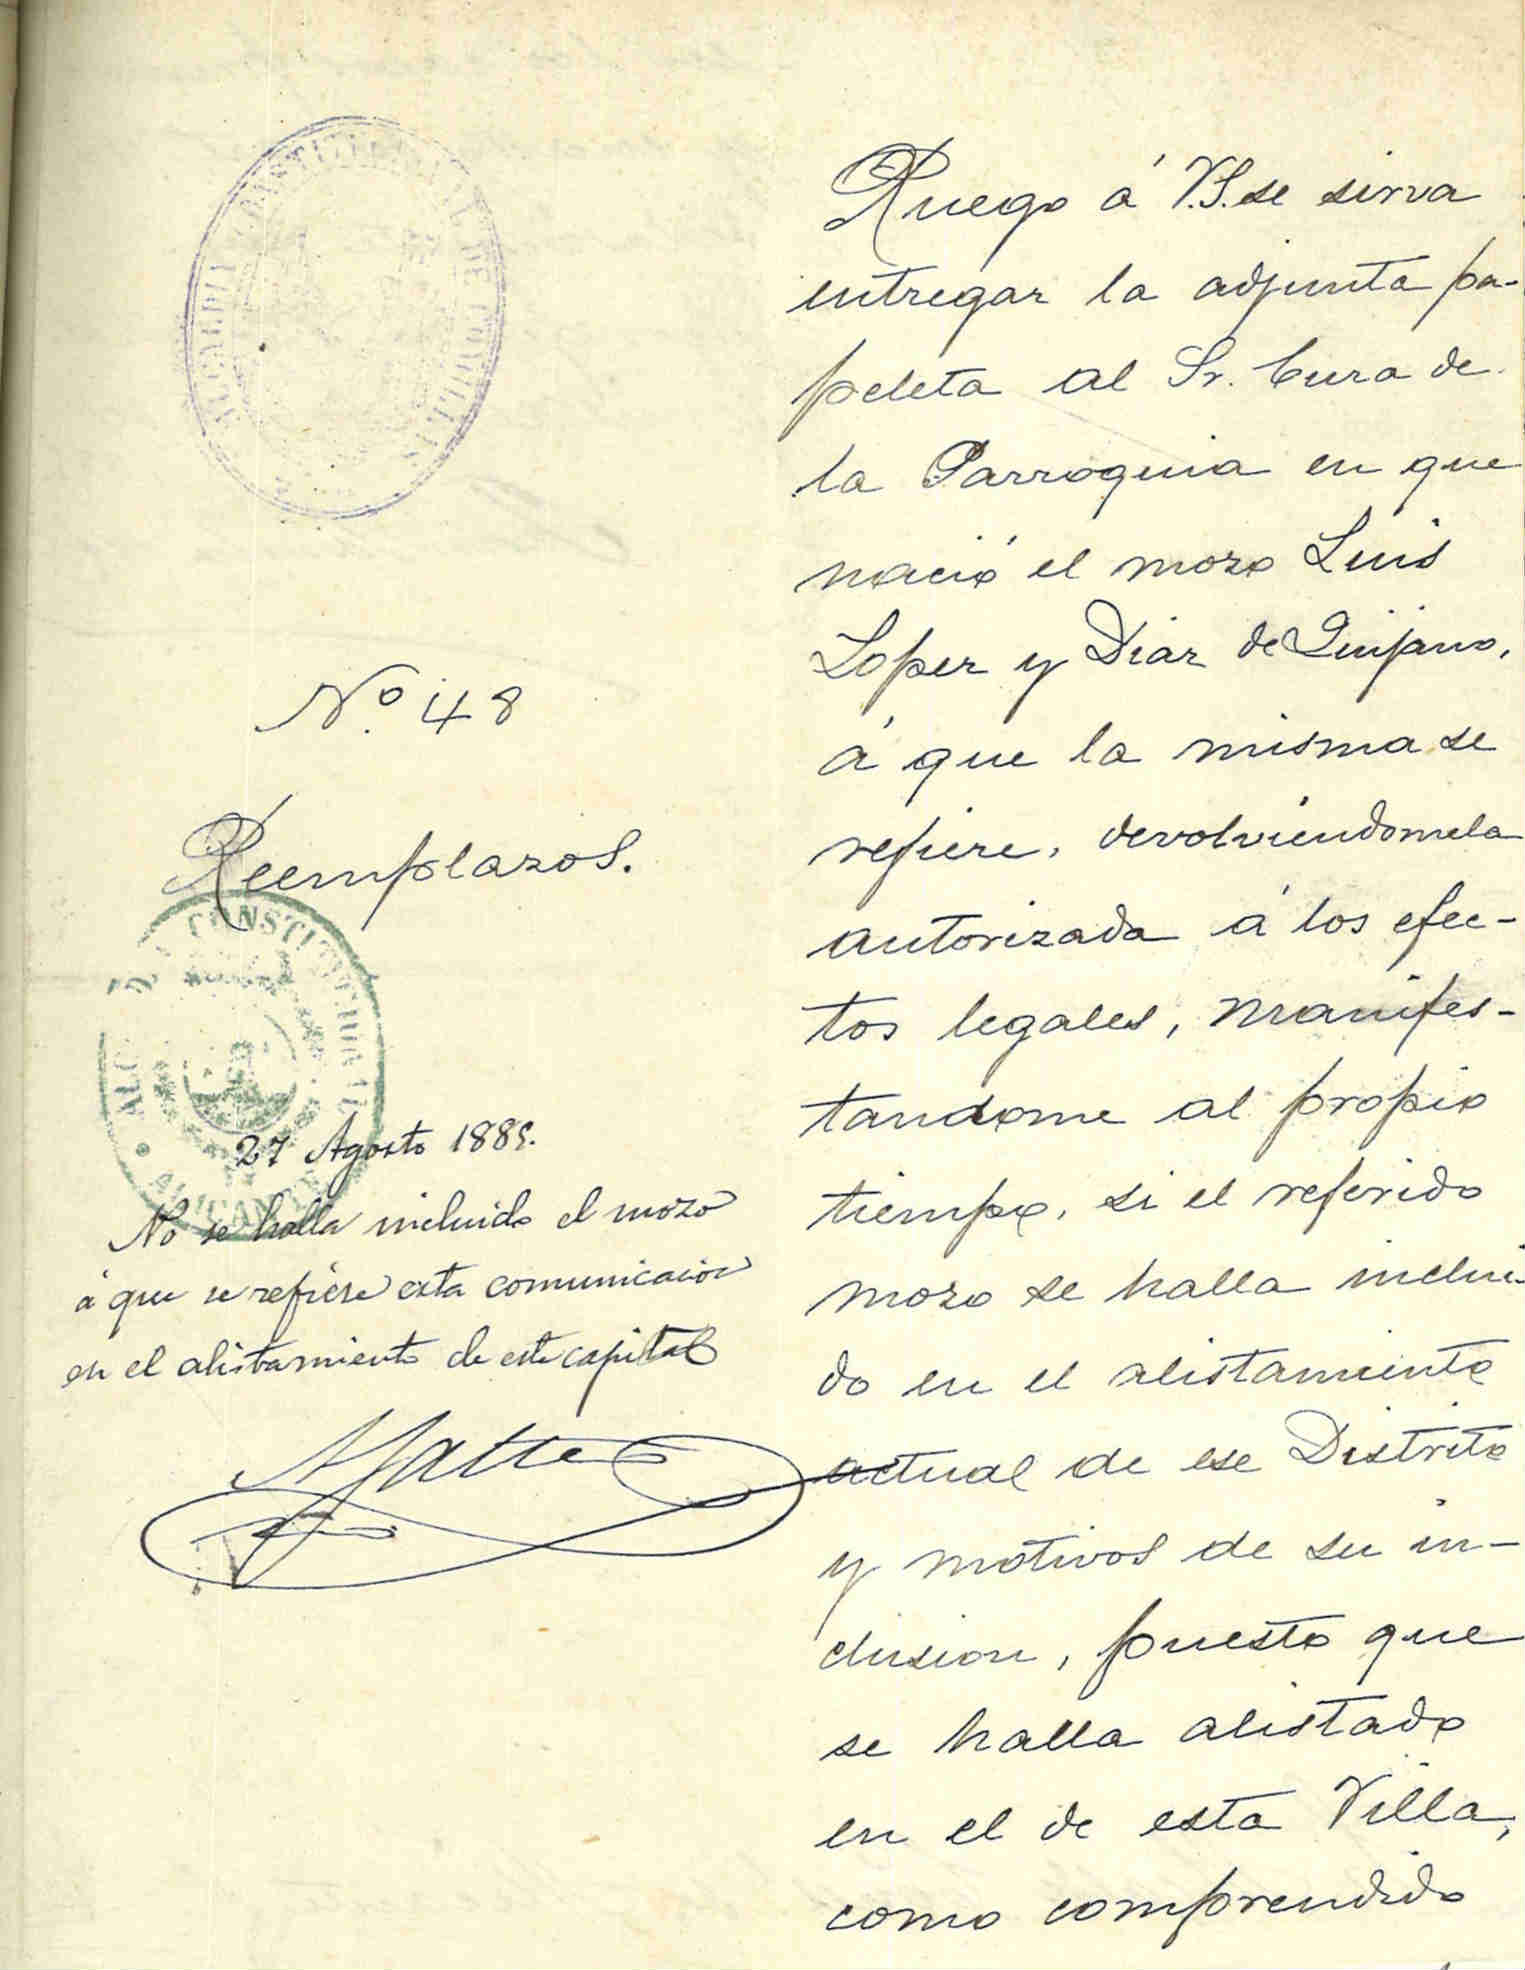 ALCALDIA CONSTITUCIONAL DE COMILLAS
Nº. 48
Reemplazos.
ALCALDIA CONSTITUCIONAL
ALICANTE
27 Agosto 1889.
No se halla incluido el mozo
á que se refiere esta comunicación
en el alistamiento de esta capital
Ruego á V.S. se sirva
entregar la adjunta pa-
peleta al Sr. Cura de
la Parroquia en que
nació el mozo Luis
Lopez y Diaz de Quijano,
á que la misma se
refiere, devolviéndomela
autorizada á los efec-
tos legales, manifes-
tandome al propio
tiempo, si el referido
mozo se halla inclui-
do en el alistamiento
actual de ese Distrito
y motivos de su in-
clusion, puesto que
se halla alistado
en el de esta Villa,
como comprendido